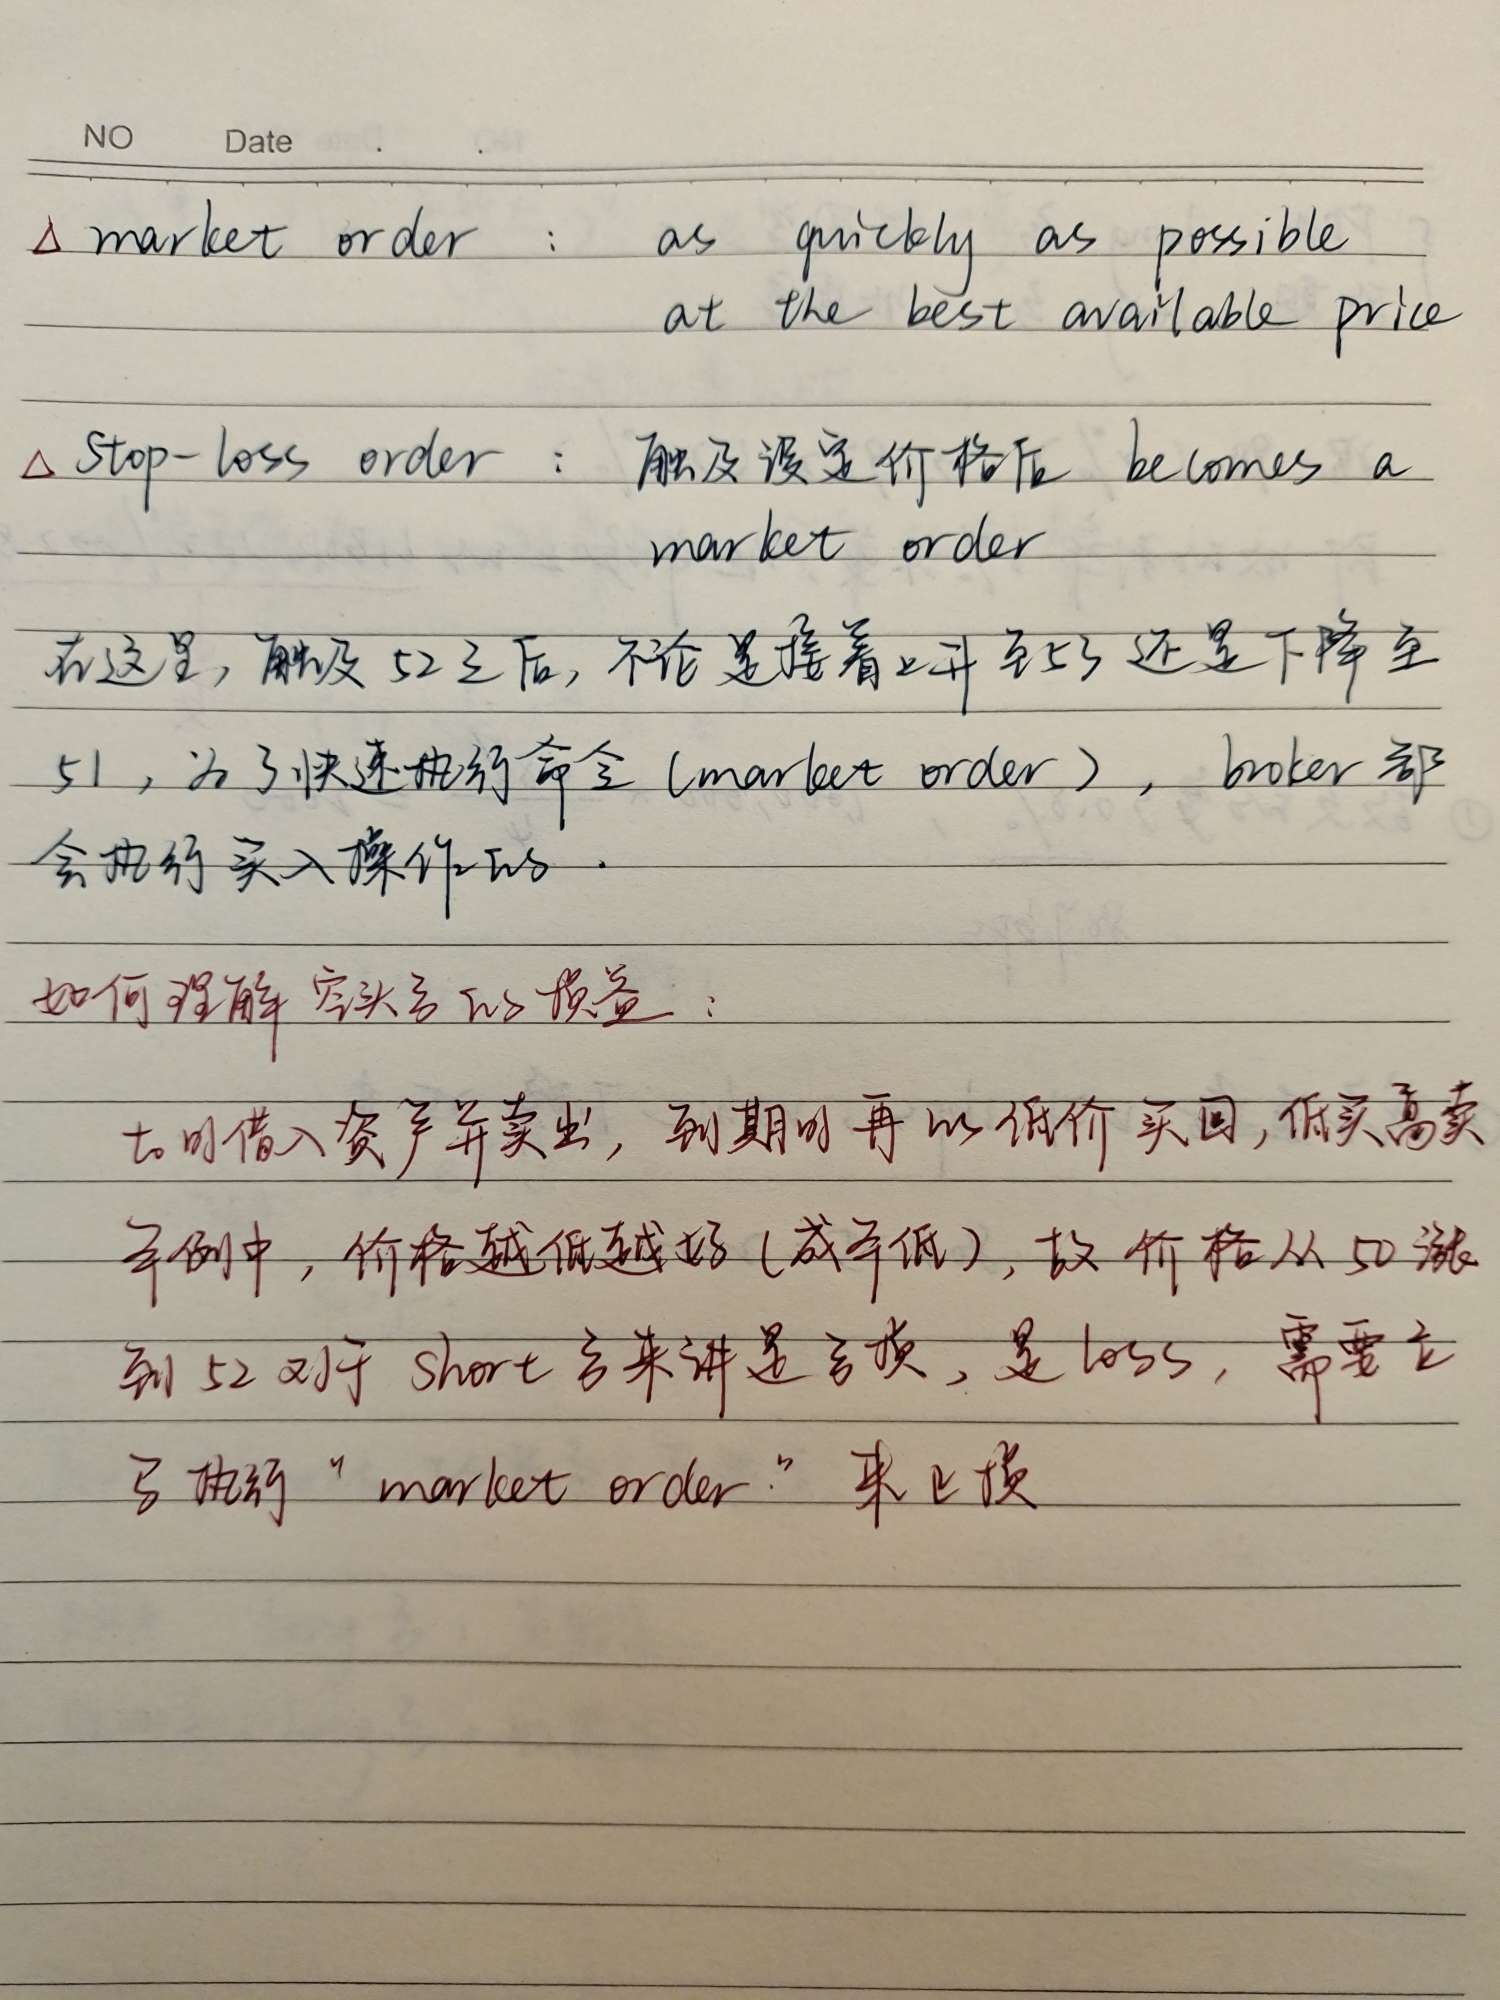 NO Date . .
△ market order : as quickly as possible
at the best available price
△ Stop-loss order : 触及设定价格后 becomes a
market order
在这里，触及52之后，不论是接着上升至53还是下降至
51，为了快速执行命令（market order），broker都
会执行买入操作的.
如何理解空头方的损益：
t₀时借入资产并卖出，到期时再以低价买回，低买高卖
本例中，价格越低越好（成本低），故价格从50涨
到52对于short方来讲是亏损，是loss，需要立
马执行"market order"来止损